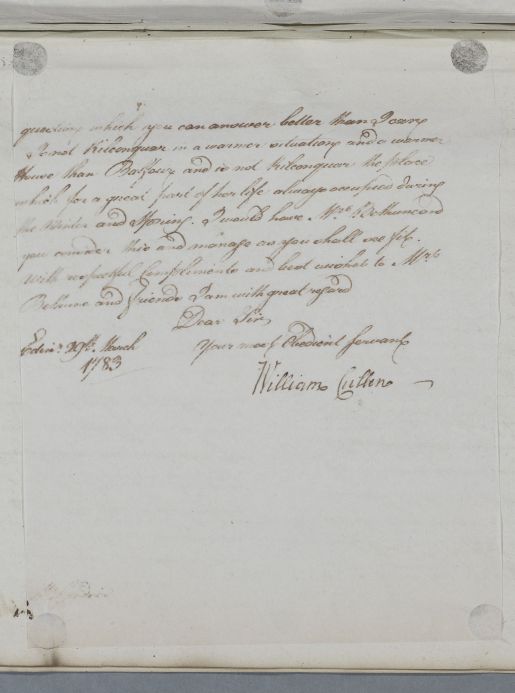 question which you can answer better than I can
Is not Kilconquhar in a warmer situation and a warmer
House than Balfour and is not Kilconquhar the place
which for a great part of her life always occupied during
the Winter and Spring. I would have Mrs Bethune and
you consider this and manage as you shall see fit.
With respectful Compliments and best wishes to Mrs
Bethune and friends I am with great regard
Dear Sir
Your most Obedient Servant
Edinr. 29th. March
1783
William Cullen